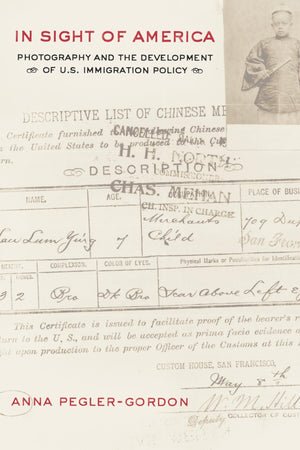 IN SIGHT OF AMERICA
PHOTOGRAPHY AND THE DEVELOPMENT
OF U.S. IMMIGRATION POLICY
DESCRIPTIVE LIST OF CHINESE ME
Certificate furnished to
wing Chinese
the United States to be produced to the Cu
rn.
CANCELLED
H. H. NORTH
DESCRIPTION
CHAS. MEHAN
CH. INSP. IN CHARGE
NAME.
AGE.
PLACE OF BUSI
Lum Ying
7
Merchants
Child
709 Du
San Fran
HEIGHT.
COMPLEXION.
COLOR OF EYES.
Physical Marks or Peculiarities for Identificati
3 2
Bro
Dk Bro
Scar Above Left E
This Certificate is issued to facilitate proof of the bearer's r
turn to the U. S., and will be accepted as prima facie evidence o
ght upon production to the proper Officer of the Customs at this
CUSTOM HOUSE, SAN FRANCISCO,
May 8th
ANNA PEGLER-GORDON
COLLECTOR OF CUST